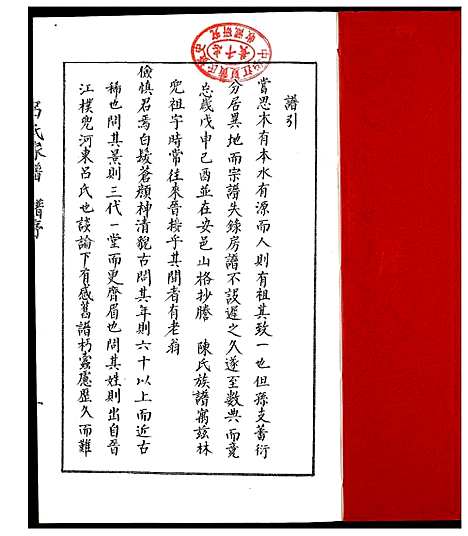 譜引
嘗思木有本水有源而人則有祖其致一也但孫支蕃衍
分居異地而宗譜失錄房譜不設遲之久遂至數典而竟
忘歲戊申己酉並在安邑山格抄謄 陳氏族譜寓玆林
兜祖宇時常往來晉接乎其間者有老翁
儉慎君焉白鬚蒼顏神清貌古問其年則六十以上而近古
稀也問其景則三代一堂而更齊眉也問其姓則出自晉
江樸兜河東呂氏也談論下有感舊譜朽蠹慮歷久而難
呂氏家譜 譜序